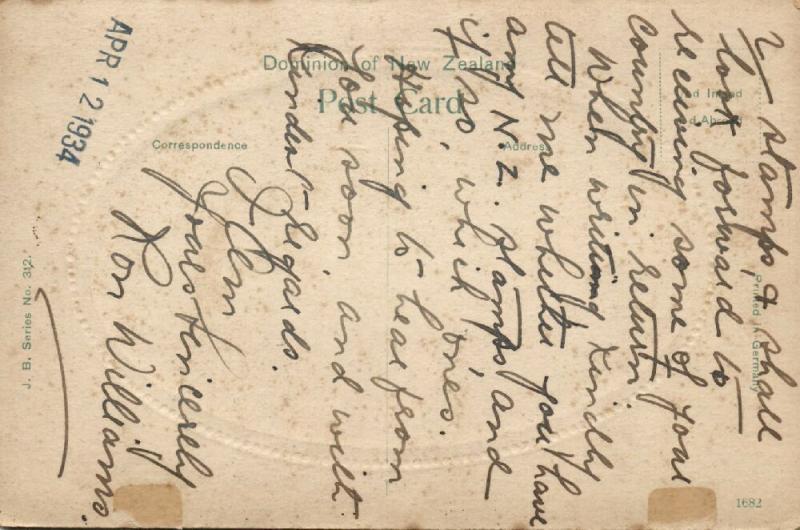 Dominion of New Zealand
Post Card
Correspondence
Address
Printed in Germany
J. B. Series No. 312.
1682
APR 12 1934
2 stamps, & shall
look forward to
receiving some of your
country in return.
When writing kindly
tell me whether you have
any N.Z. stamps and
if so, which ones.
Hoping to hear from
you soon, and with
kindest regards.
I Am
Yours Sincerely
Ron Williams.